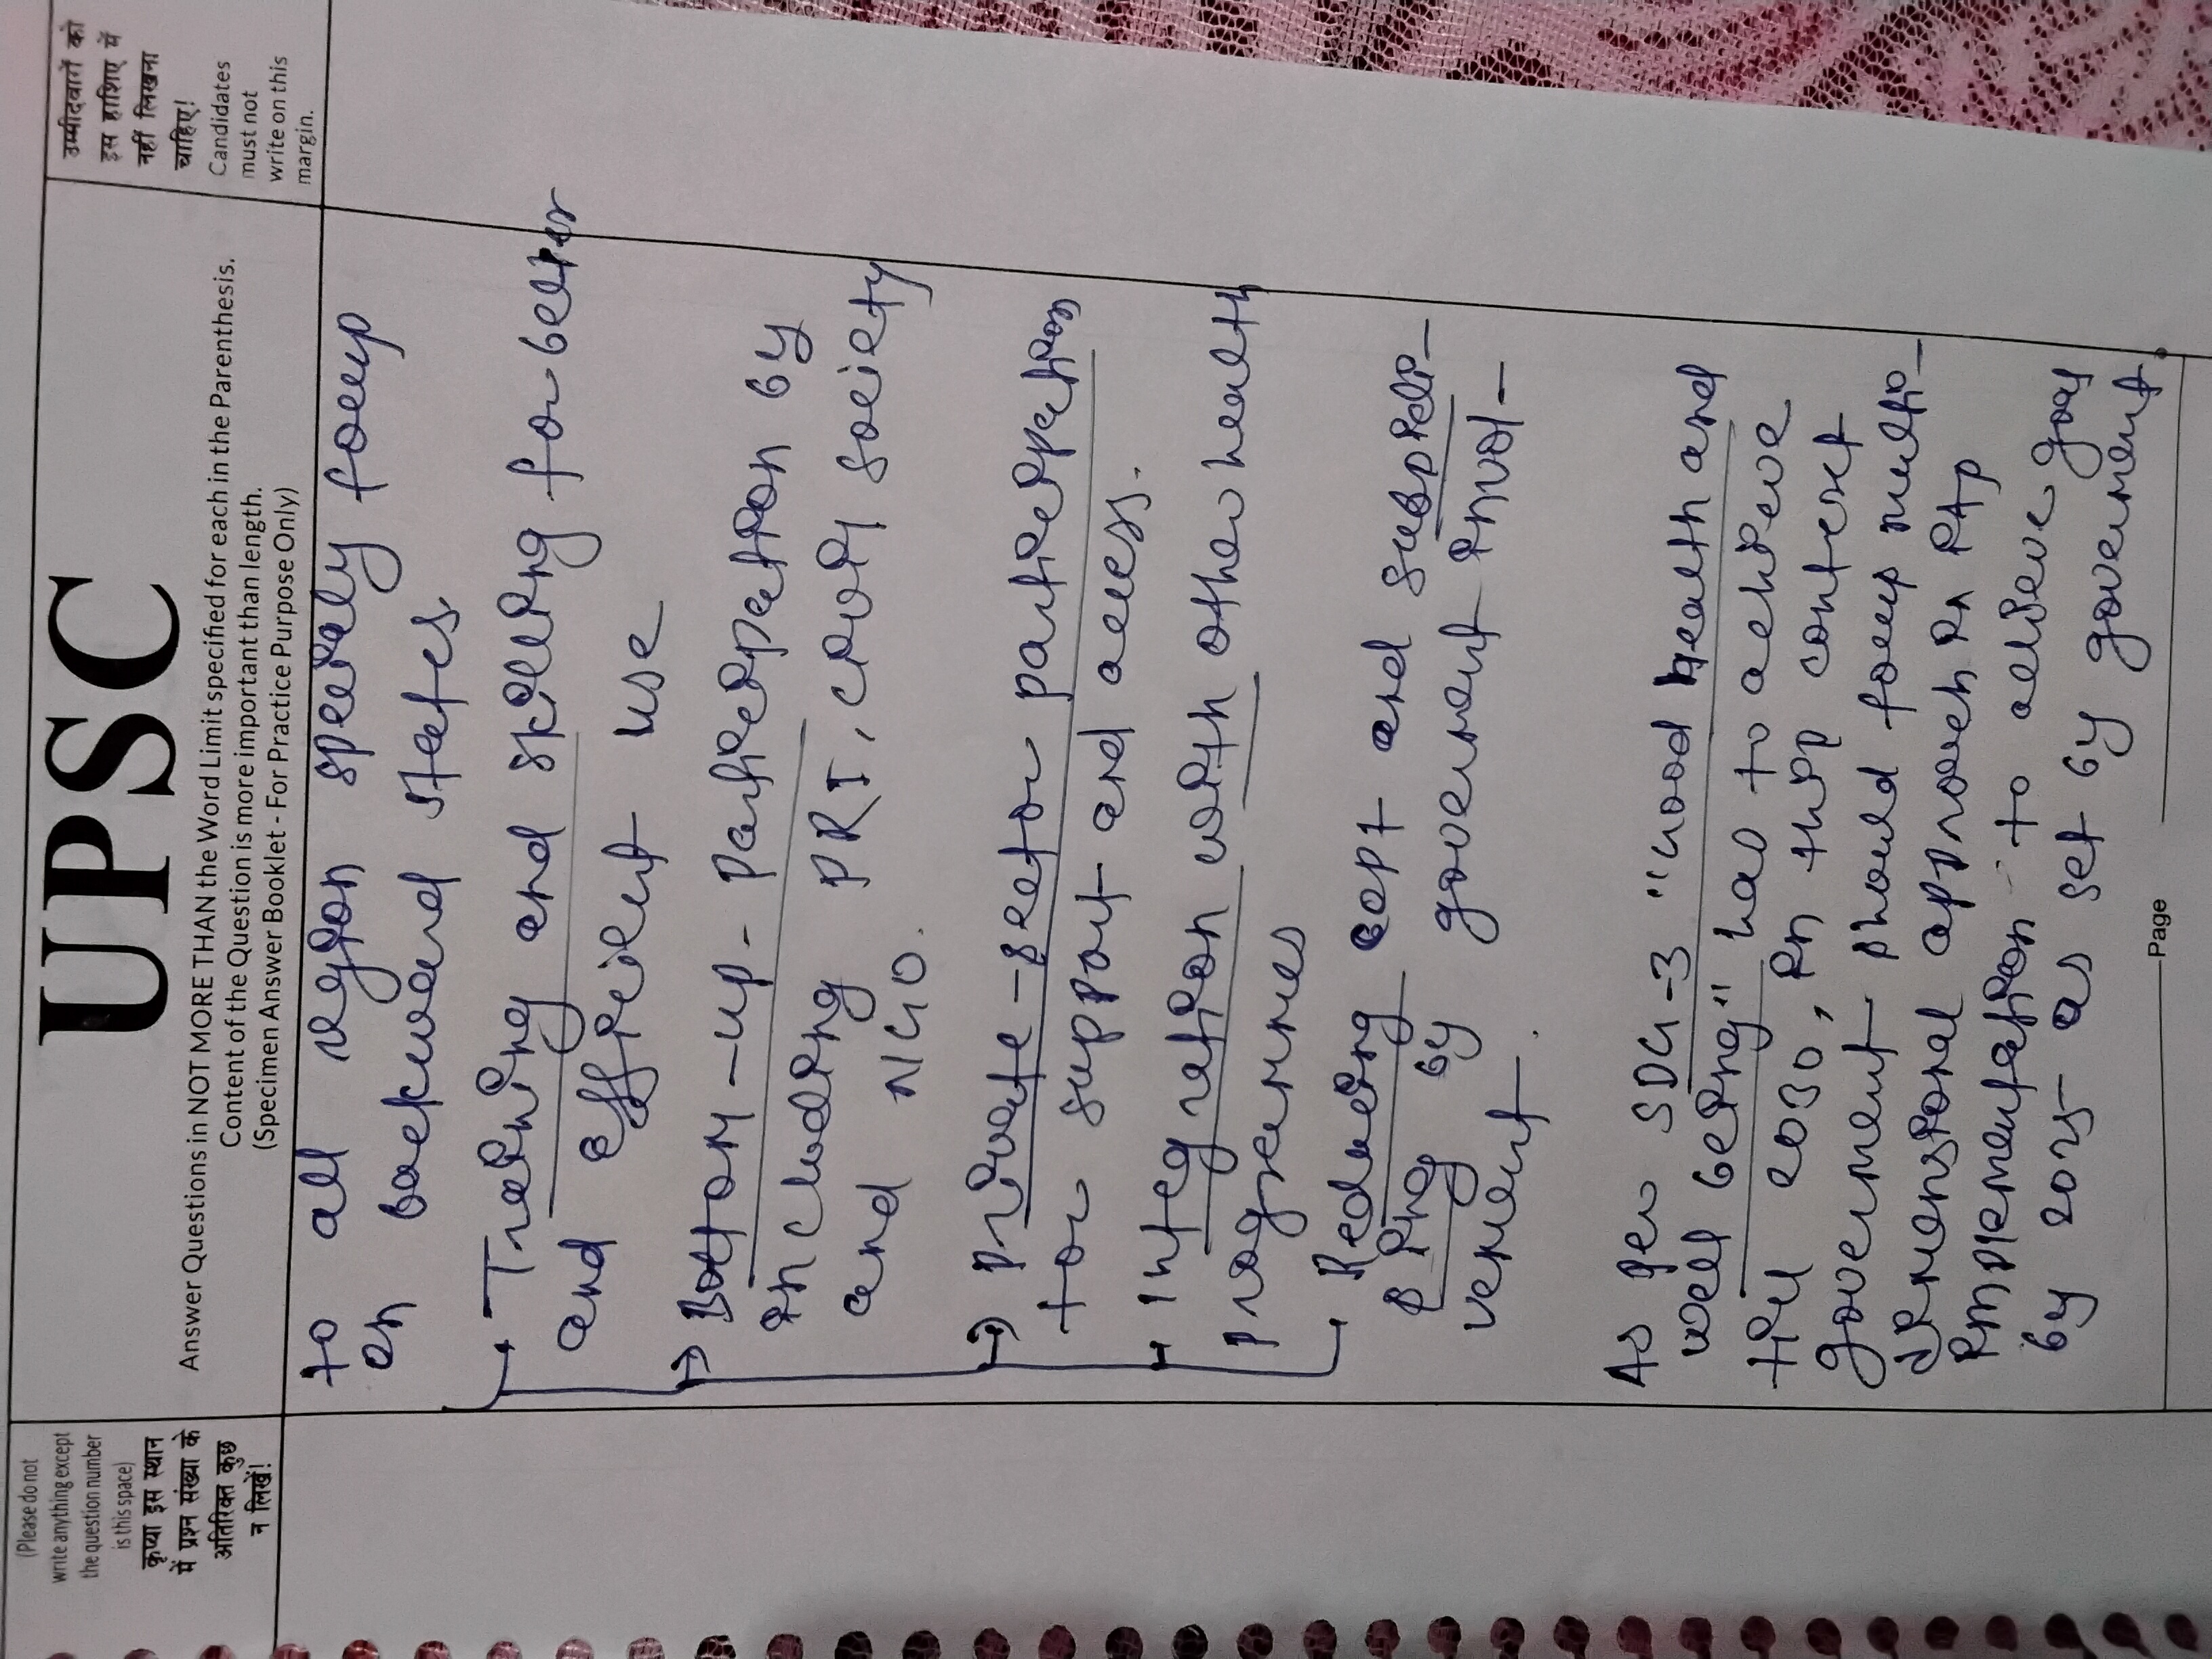 (Please do not
write anything except
the question number
is this space)
कृप्या इस स्थान
में प्रश्न संख्या के
अतिरिक्त कुछ
न लिखें!
UPSC
Answer Questions in NOT MORE THAN the Word Limit specified for each in the Parenthesis.
Content of the Question is more important than length.
(Specimen Answer Booklet - For Practice Purpose Only)
उम्मीदवारों को
इस हाशिए में
नहीं लिखना
चाहिए!
Candidates
must not
write on this
margin.
to all region specially
on backward states
Training and skilling for better
and efficient use
Bottom-up-participation by
including PRI, civil society
and NGO.
private-sector participation
for support and access.
Integration with other health
programmes
Reducing and
by government invol-
vement.
As per SDG-3 "Good health and
well being" has to achieve
till 2030, in this context
government should multi-
dimensional approach in
implementation to achieve goal
by as set by government.
Page